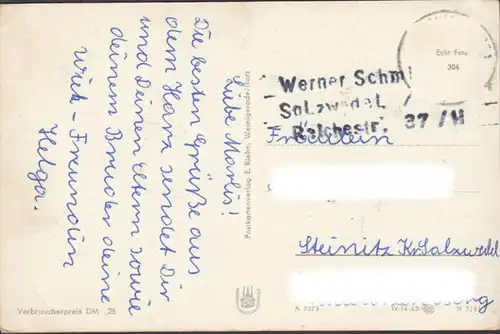 Liebe Marlis!
Die besten Grüße aus
dem Harz sendet Dir
und Deinen Eltern sowie
deinem Bruder deine
Wieh-Freundin
Helga.
Verbraucherpreis DM -,25
Postkartenverlag E. Riehn, Wernigerode/Harz
Echt Foto
304
Werner Schm
Salzwedel,
Reichestr. 37 /M
Fräulein
Steinitz Kr. Salzwedel
A 7373
IV-14-45